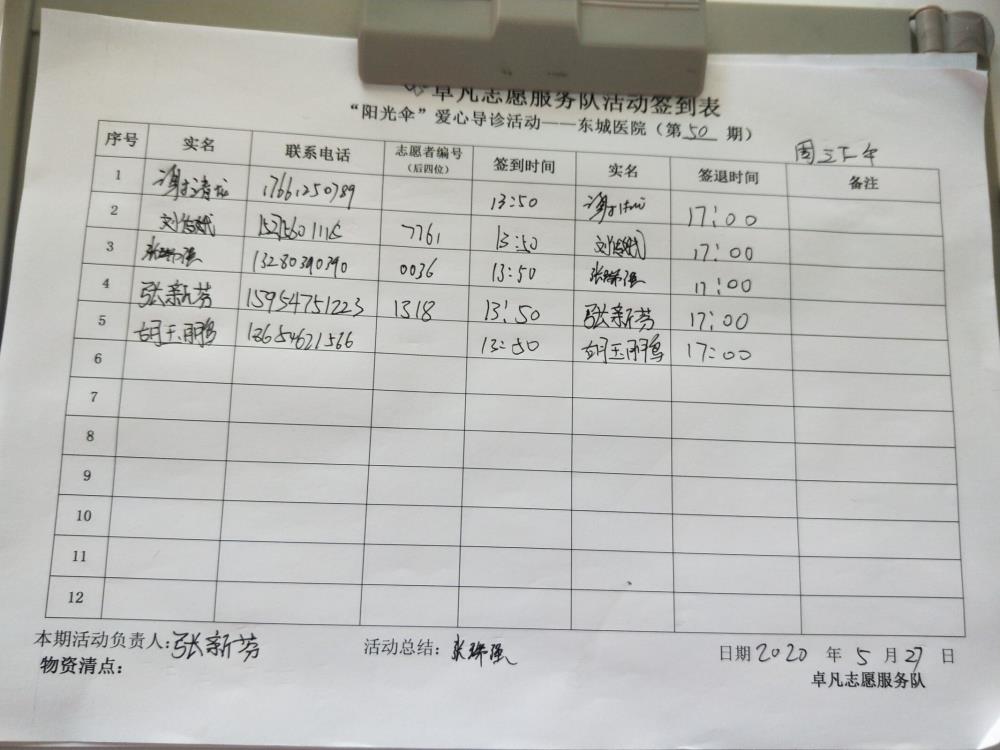 卓凡志愿服务队活动签到表
“阳光伞”爱心导诊活动——东城医院（第50期）
周三下午
序号 实名 联系电话 志愿者编号（后四位） 签到时间 实名 签退时间 备注
1 17661250789 13:50 17:00
2 7761 13:50 17:00
3 13280390390 0036 13:50 17:00
4 张新芬 15954751223 1318 13:50 张新芬 17:00
5 胡玉丽 13654621566 13:50 胡玉丽 17:00
6
7
8
9
10
11
12
本期活动负责人：张新芬 活动总结： 日期2020年5月27日
物资清点： 卓凡志愿服务队